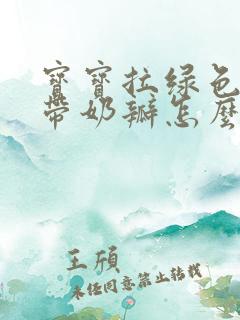 寶寶拉綠色
帶奶瓣怎麼
王頎
未經同意禁止轉載